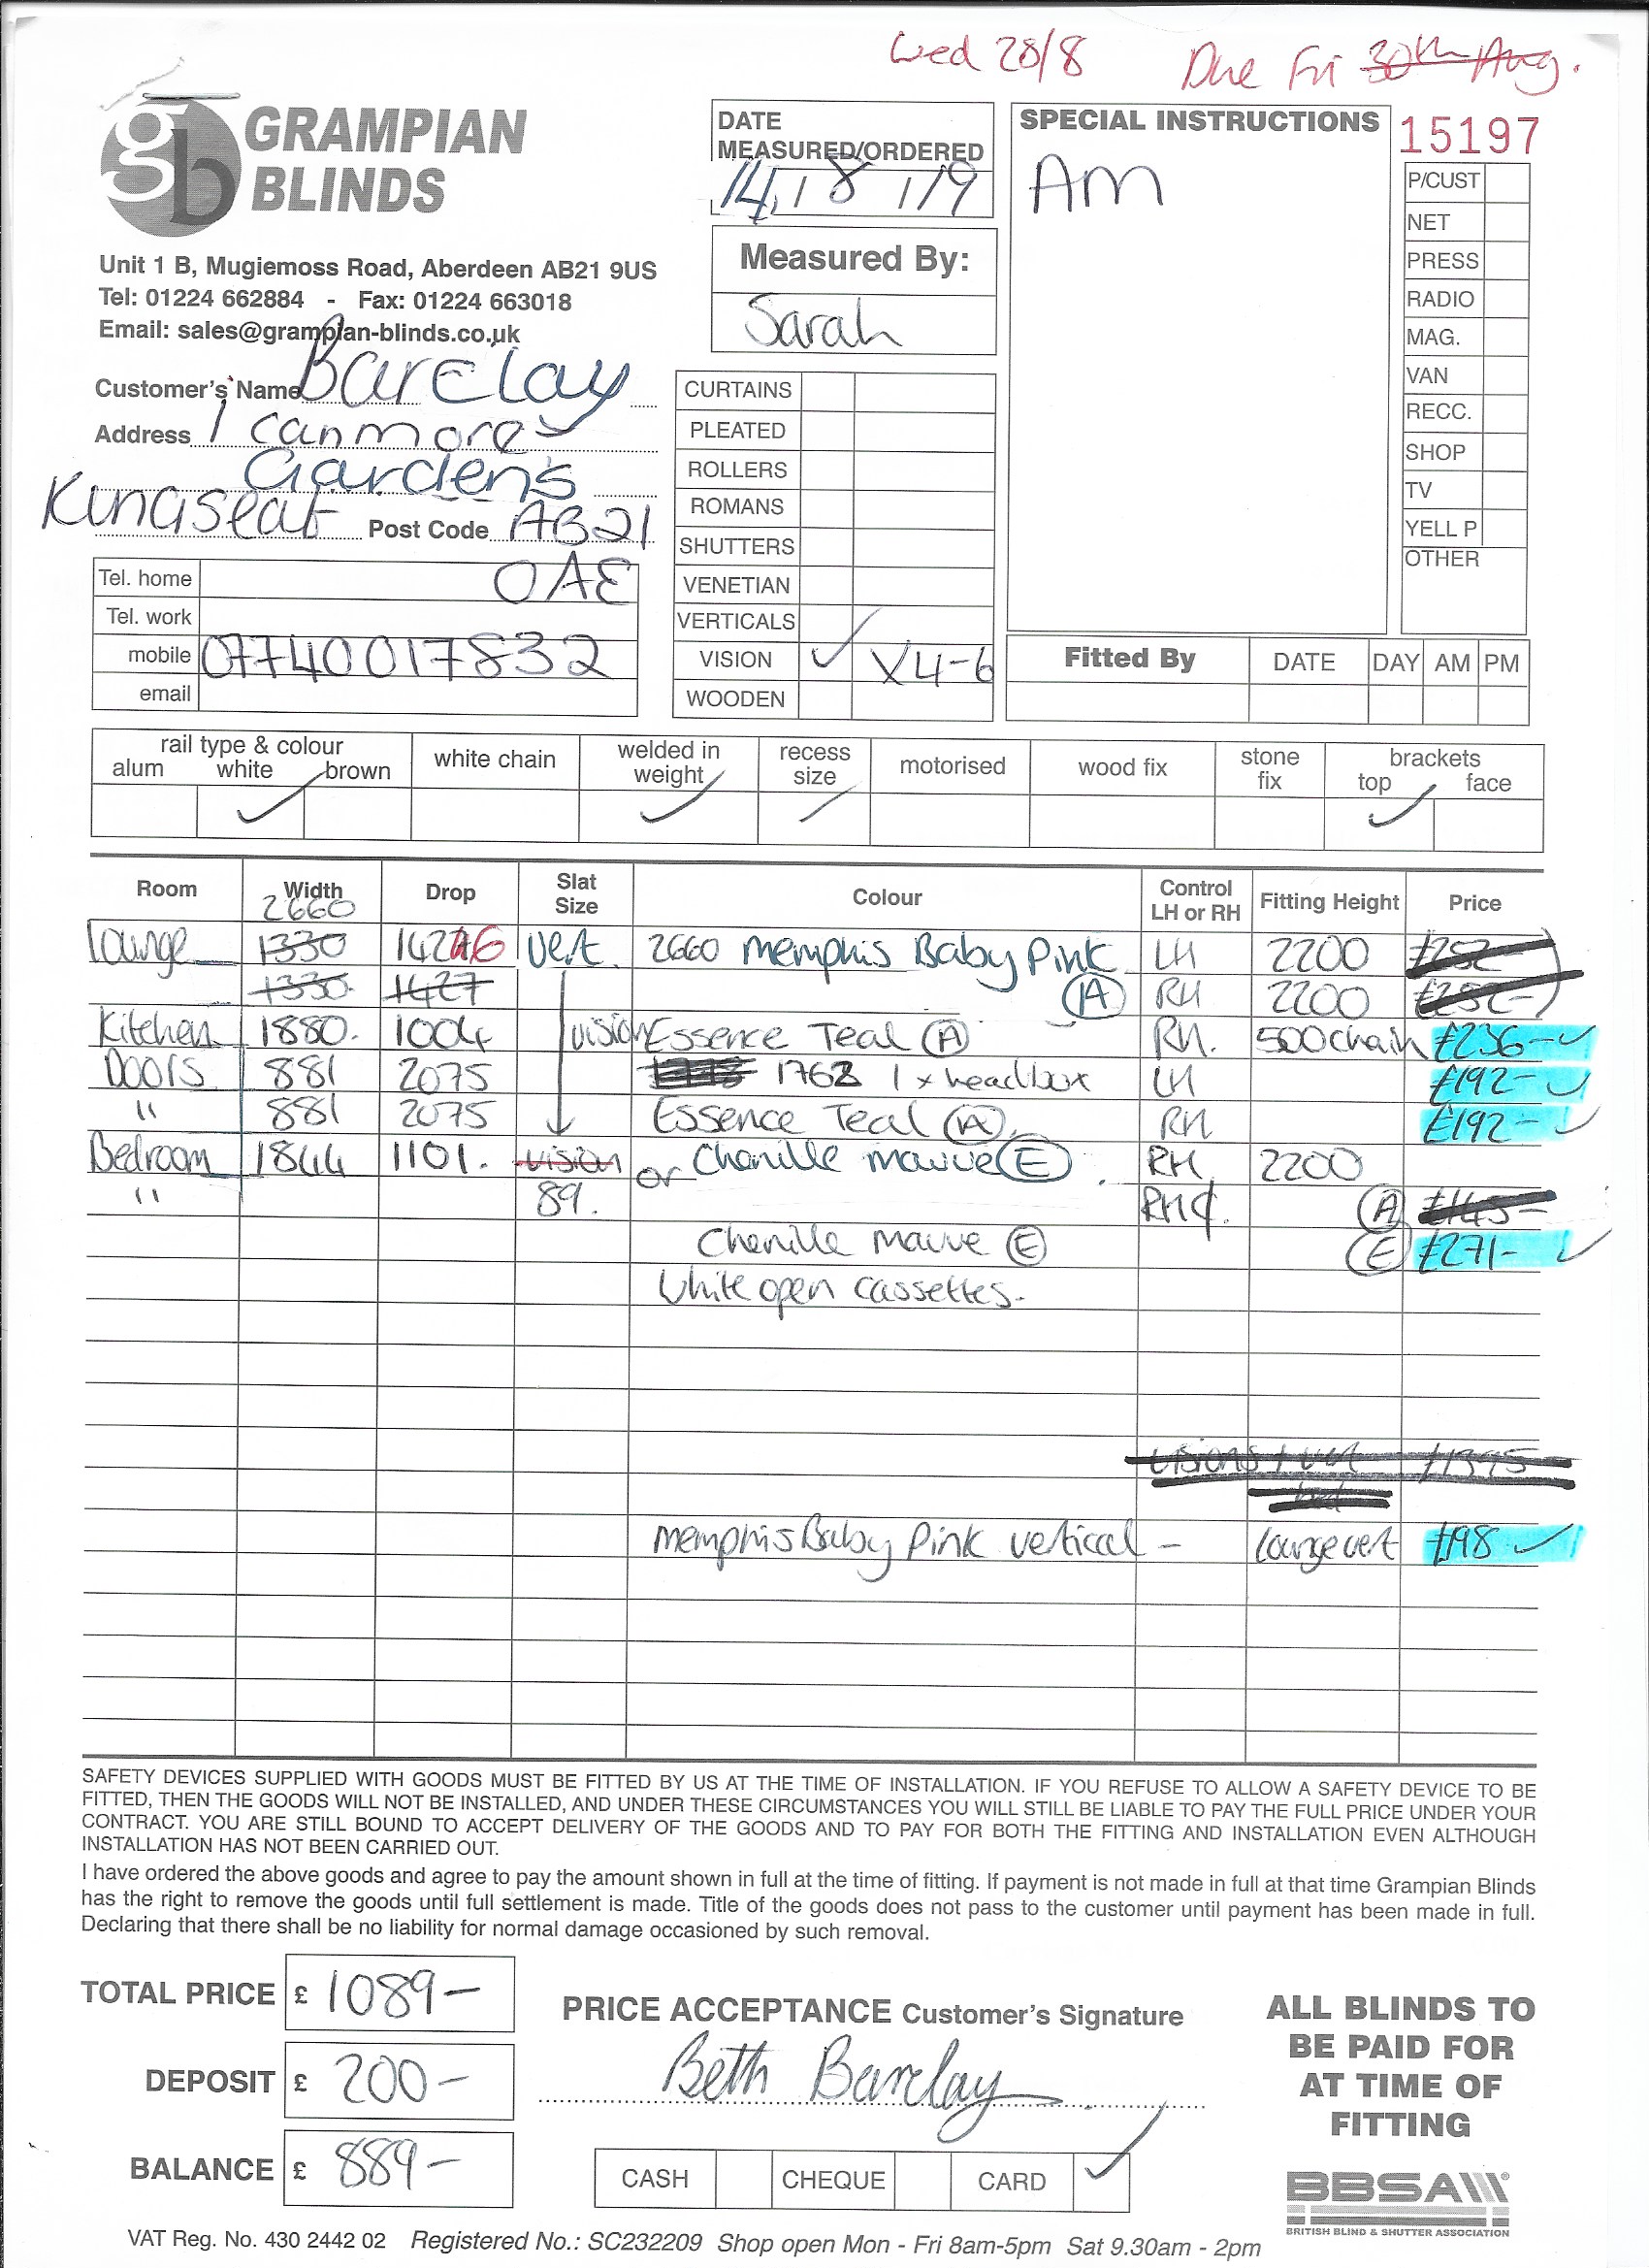 Wed 28/8 Due Fri 30th Aug.
GRAMPIAN
BLINDS
Unit 1 B, Mugiemoss Road, Aberdeen AB21 9US
Tel: 01224 662884 - Fax: 01224 663018
Email: sales@grampian-blinds.co.uk
Customer's Name Barclay
Address 1 Canmore
Gardens
Kingseat Post Code AB21
0AE
Tel. home
Tel. work
mobile 07740017832
email
DATE
MEASURED/ORDERED
14/8/19
Measured By:
Sarah
CURTAINS
PLEATED
ROLLERS
ROMANS
SHUTTERS
VENETIAN
VERTICALS
VISION ✓ X4-6
WOODEN
SPECIAL INSTRUCTIONS
AM
15197
P/CUST
NET
PRESS
RADIO
MAG.
VAN
RECC.
SHOP
TV
YELL P
OTHER
Fitted By DATE DAY AM PM
rail type & colour
alum white brown
white chain
welded in
weight
recess
size
motorised
wood fix
stone
fix
brackets
top face
Room Width Drop Slat Size Colour Control LH or RH Fitting Height Price
2660
Lounge 1330 1426 Vert 2660 Memphis Baby Pink LH 2200 £252
1330 1427 (A) RH 2200 £252-
Kitchen 1880. 1004 vision Essence Teal (A) RH. 500 chain £236-
Doors 881 2075 1762 1 x headbox LH £192-
" 881 2075 Essence Teal (A) RH £192-
Bedroom 1844 1101. vision or Chenille mauve (E) RH 2200
" 89. RH¢. (A) £145-
Chenille mauve (E) (E) £271-
White open cassettes.
visions 1 vert £1395
bed
Memphis Baby Pink vertical - Lounge vert £198
SAFETY DEVICES SUPPLIED WITH GOODS MUST BE FITTED BY US AT THE TIME OF INSTALLATION. IF YOU REFUSE TO ALLOW A SAFETY DEVICE TO BE
FITTED, THEN THE GOODS WILL NOT BE INSTALLED, AND UNDER THESE CIRCUMSTANCES YOU WILL STILL BE LIABLE TO PAY THE FULL PRICE UNDER YOUR
CONTRACT. YOU ARE STILL BOUND TO ACCEPT DELIVERY OF THE GOODS AND TO PAY FOR BOTH THE FITTING AND INSTALLATION EVEN ALTHOUGH
INSTALLATION HAS NOT BEEN CARRIED OUT.
I have ordered the above goods and agree to pay the amount shown in full at the time of fitting. If payment is not made in full at that time Grampian Blinds
has the right to remove the goods until full settlement is made. Title of the goods does not pass to the customer until payment has been made in full.
Declaring that there shall be no liability for normal damage occasioned by such removal.
TOTAL PRICE £ 1089-
DEPOSIT £ 200-
BALANCE £ 889-
PRICE ACCEPTANCE Customer's Signature
Beth Barclay
CASH CHEQUE CARD ✓
ALL BLINDS TO
BE PAID FOR
AT TIME OF
FITTING
BBSA
BRITISH BLIND & SHUTTER ASSOCIATION
VAT Reg. No. 430 2442 02 Registered No.: SC232209 Shop open Mon - Fri 8am-5pm Sat 9.30am - 2pm